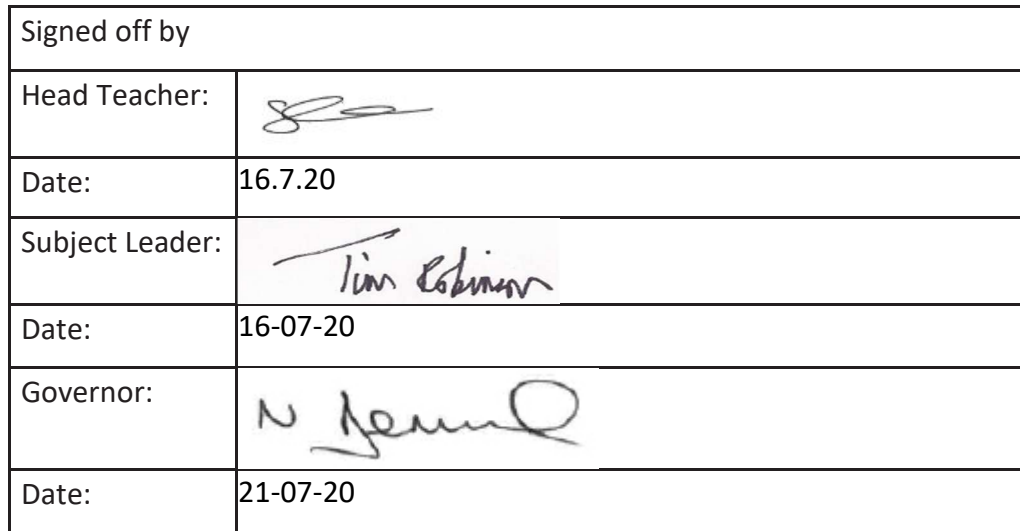 Signed off by
Head Teacher:
Date: 16.7.20
Subject Leader: Tim Robinson
Date: 16-07-20
Governor: N
Date: 21-07-20